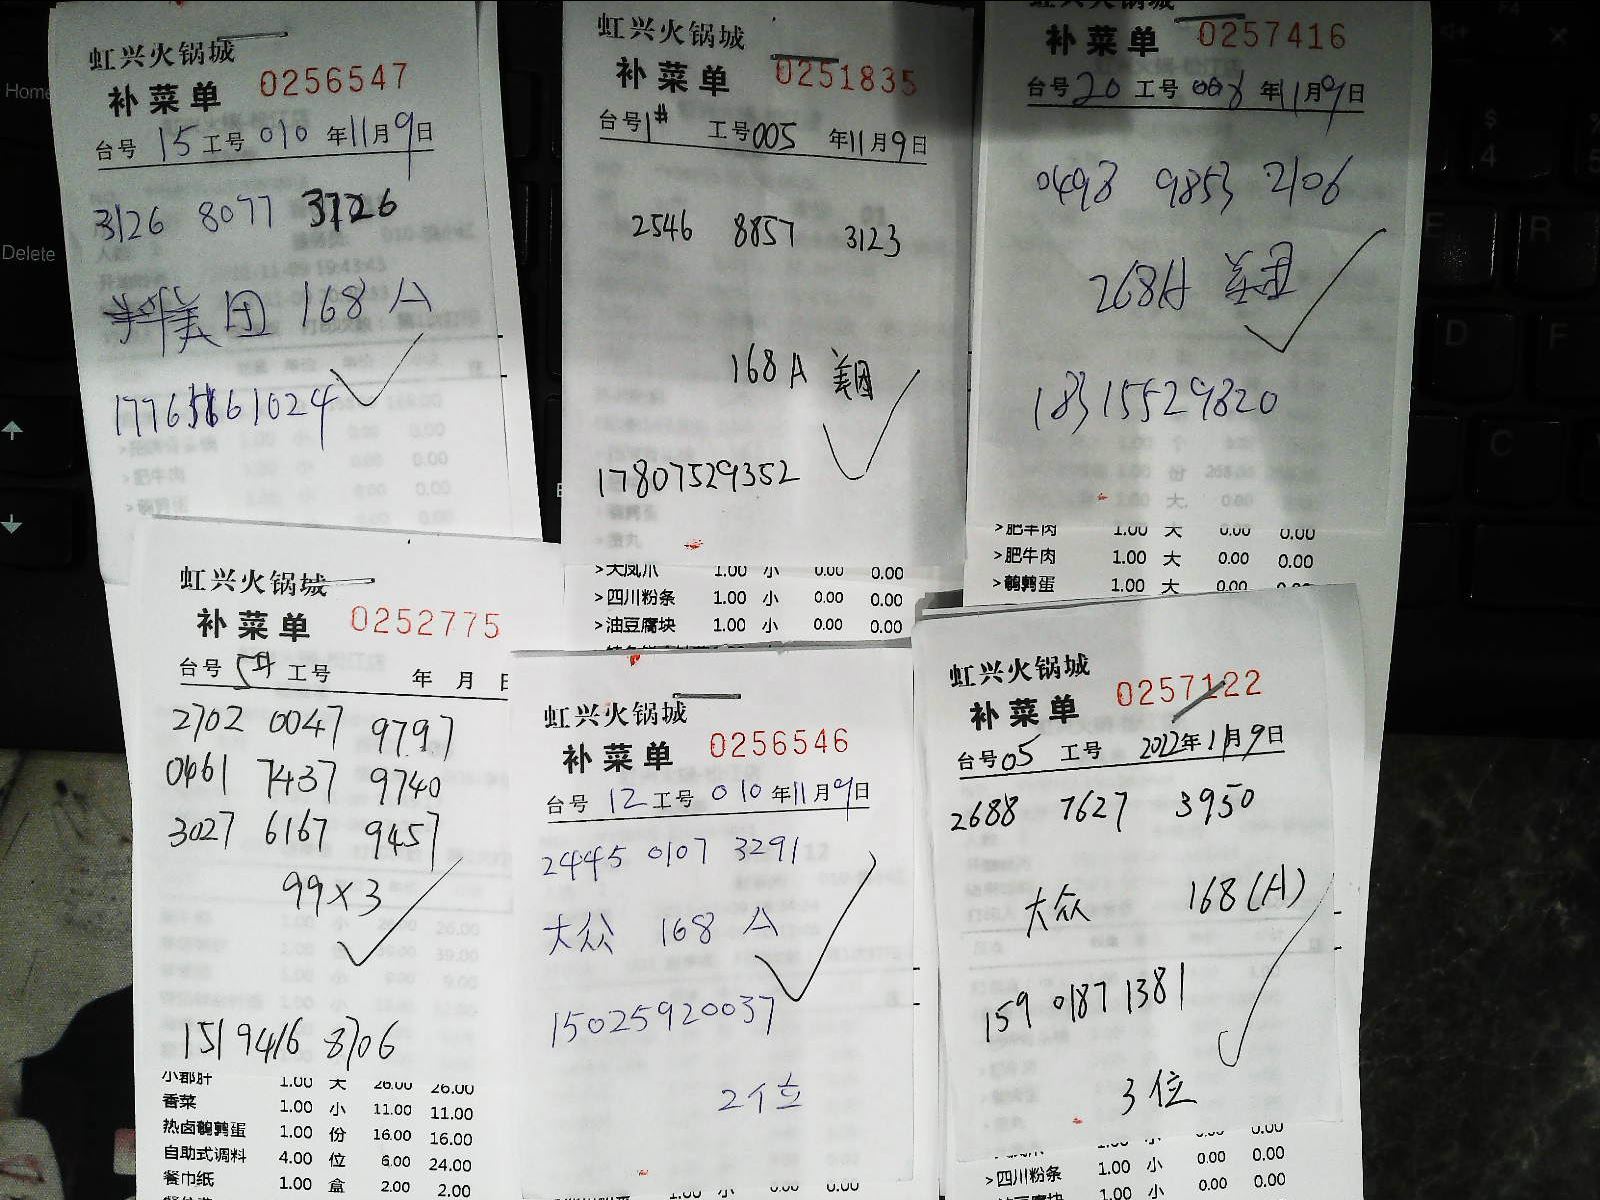 虹兴火锅城
补菜单 0256547
台号 15 工号 010 年11月9日
3126 8077 3726
美团 168 A
虹兴火锅城
补菜单 0251835
台号1# 工号005 年11月9日
2546 8857 3123
168A 美团
17807529352
>大凤爪 1.00 小 0.00 0.00
>四川粉条 1.00 小 0.00 0.00
>油豆腐块 1.00 小 0.00 0.00
补菜单 0257416
台号20 工号008 年11月9日
0493 9853 2106
268A 美团
18315529820
>肥羊肉 1.00 大 0.00 0.00
>肥牛肉 1.00 大 0.00 0.00
>鹌鹑蛋 1.00 大 0.00 0.00
虹兴火锅城
补菜单 0252775
台号 工号 年 月 日
2702 0047 9797
0461 7437 9740
3027 6167 9457
99×3
151 9416 8706
小郡肝 1.00 大 26.00 26.00
香菜 1.00 小 11.00 11.00
热卤鹌鹑蛋 1.00 份 16.00 16.00
自助式调料 4.00 位 6.00 24.00
餐巾纸 1.00 盒 2.00 2.00
虹兴火锅城
补菜单 0256546
台号 12 工号 010 年11月9日
2445 0107 3291
大众 168 A
15025920037
2个位
虹兴火锅城
补菜单 0257122
台号05 工号 2022年11月9日
2688 7627 3950
大众 168(A)
159 0187 1381
3位
>四川粉条 1.00 小 0.00 0.00
油豆腐块 1.00 小 0.00 0.00
Home
Delete